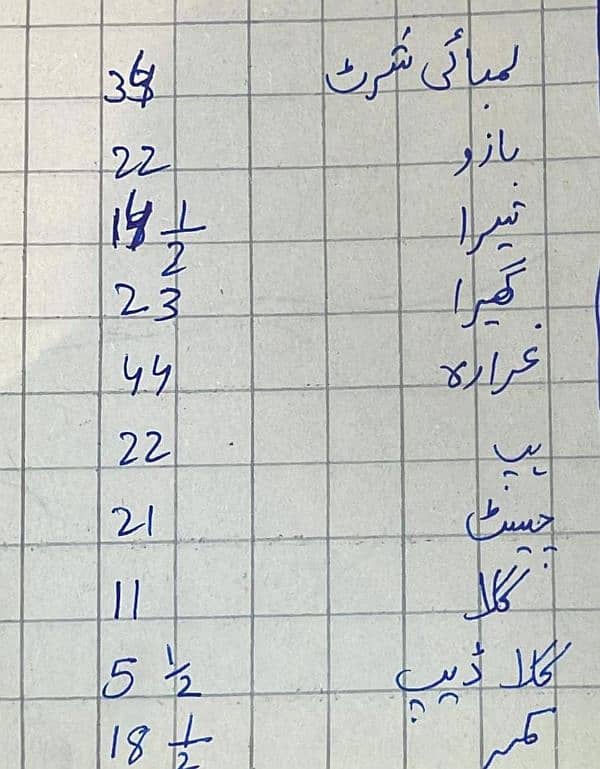 لمبائی شرٹ
بازو 22
تیرا 1/2
گھیرا 23
غرارہ 44
ہپ 22
چیسٹ 21
گلا 11
گلا ڈیپ 5 1/2
کمر 18 1/2